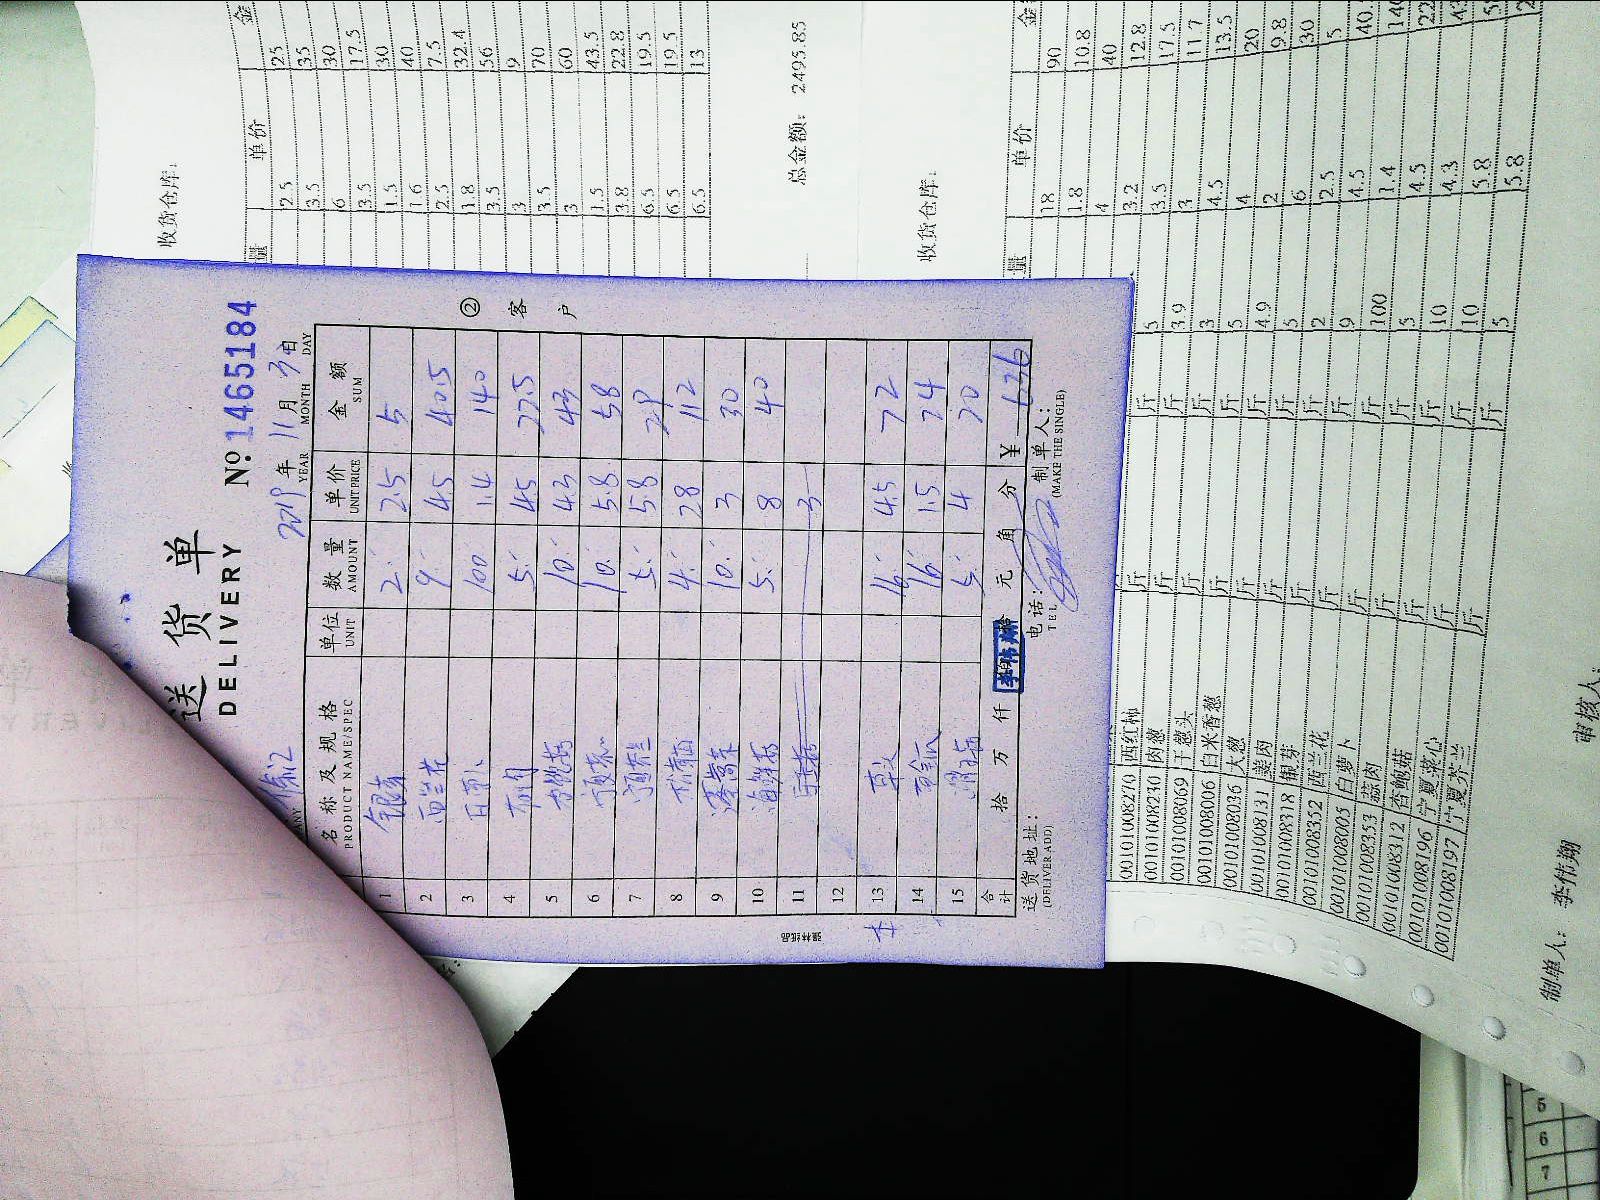 送 货 单
DELIVERY
№ 1465184
2019 年 11 月 3 日
YEAR MONTH DAY
名 称 及 规 格 单位 数 量 单 价 金 额
PRODUCT NAME/SPEC UNIT AMOUNT UNIT PRICE SUM
1 银芽 2 2.5 5
2 西兰花 9 4.5 40.5
3 白萝卜 100 1.4 140
4 蒜肉 5 4.5 22.5
5 杏鲍菇 10 4.3 43
6 宁夏菜心 10 5.8 58
7 宁夏芥兰 5 5.8 29
8 4 28 112
9 10 3 30
10 海鲜菇 5 8 40
11 3
12
13 16 4.5 72
14 16 1.5 24
15 5 4 20
合计 拾 万 仟 元 角 分 ¥ 636
送 货 地 址: 电话: 制 单 人:
(DELIVER ADD) TEL (MAKE THE SINGLE)
② 客 户
强林纸品
收货仓库:
量 单价 金
2.5 25
3.5 35
6 30
3.5 17.5
1.5 30
1.6 40
2.5 7.5
1.8 32.4
3.5 56
3 9
3.5 70
3 60
1.5 43.5
3.8 22.8
6.5 19.5
6.5 19.5
6.5 13
总金额: 2495.85
收货仓库:
量 单价 金
18 90
1.8 10.8
4 40
3.2 12.8
00101008270 西红柿 斤 5 3.5 17.5
00101008230 肉葱 斤 3.9 3 11.7
00101008069 干葱头 斤 3 4.5 13.5
00101008006 白米香葱 斤 5 4 20
00101008036 大葱 斤 4.9 2 9.8
00101008131 姜肉 斤 5 6 30
00101008318 银芽 斤 2 2.5 5
00101008352 西兰花 斤 9 4.5 40.
00101008005 白萝卜 斤 100 1.4 140
00101008353 蒜肉 斤 5 4.5 22
00101008312 杏鲍菇 斤 10 4.3 43
00101008196 宁夏菜心 斤 10 5.8
00101008197 宁夏芥兰 斤 5 5.8
制单人: 李伟翔
审核人
5
6
7